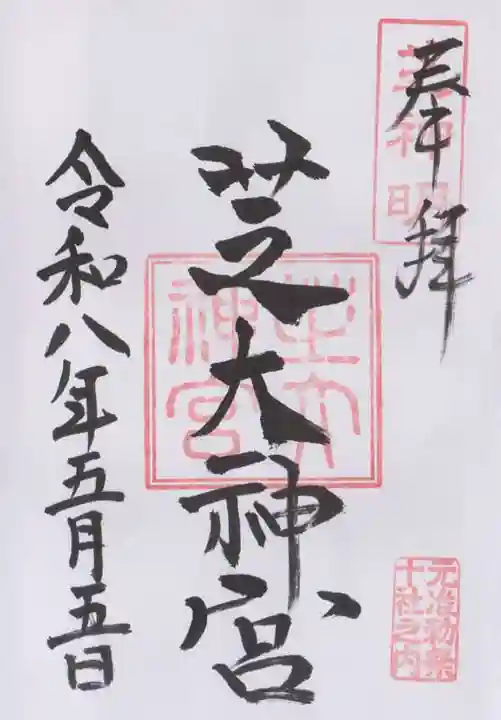 奉拝
芝神明
芝大神宮
芝大神宮
元准勅祭
十社之内
令和八年五月五日